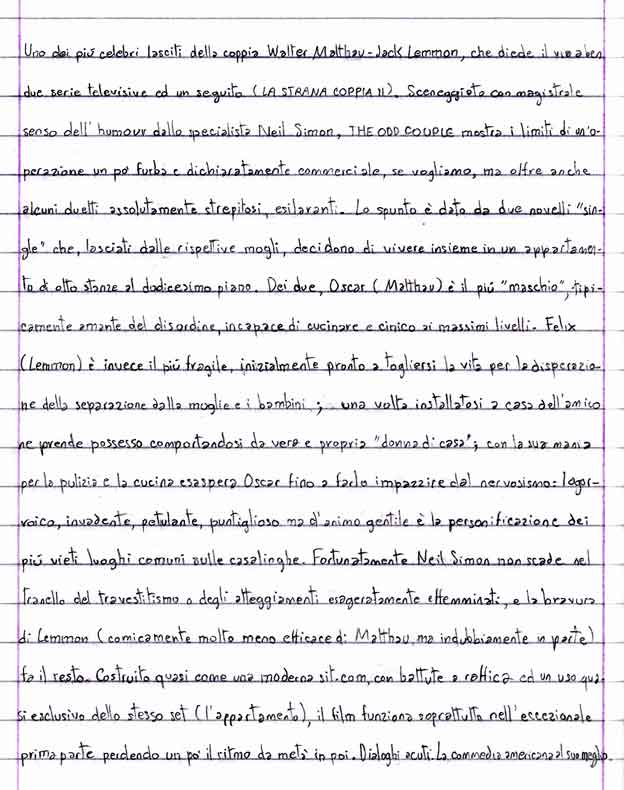 Uno dei più celebri lasciti della coppia Walter Matthau-Jack Lemmon, che diede il via a ben
due serie televisive ed un seguito (LA STRANA COPPIA II). Sceneggiato con magistrale
senso dell'humour dallo specialista Neil Simon, THE ODD COUPLE mostra i limiti di un'o-
perazione un po' furba e dichiaratamente commerciale, se vogliamo, ma offre anche
alcuni duetti assolutamente strepitosi, esilaranti. Lo spunto è dato da due novelli "sin-
gle" che, lasciati dalle rispettive mogli, decidono di vivere insieme in un appartamen-
to di otto stanze al dodicesimo piano. Dei due, Oscar (Matthau) è il più "maschio", tipi-
camente amante del disordine, incapace di cucinare e cinico ai massimi livelli. Felix
(Lemmon) è invece il più fragile, inizialmente pronto a togliersi la vita per la disperazio-
ne della separazione dalla moglie e i bambini; una volta installatosi a casa dell'amico
ne prende possesso comportandosi da vera e propria "donna di casa"; con la sua mania
per la pulizia e la cucina esaspera Oscar fino a farlo impazzire dal nervosismo: logor-
roico, invadente, petulante, puntiglioso ma d'animo gentile è la personificazione dei
più vieti luoghi comuni sulle casalinghe. Fortunatamente Neil Simon non scade nel
tranello del travestitismo o degli atteggiamenti esageratamente effemminati, e la bravura
di Lemmon (comicamente molto meno efficace di Matthau, ma indubbiamente in parte)
fa il resto. Costruito quasi come una moderna sit.com, con battute a raffica ed un uso qua-
si esclusivo dello stesso set (l'appartamento), il film funziona soprattutto nell'eccezionale
prima parte perdendo un po' il ritmo da metà in poi. Dialoghi acuti. La commedia americana al suo meglio.